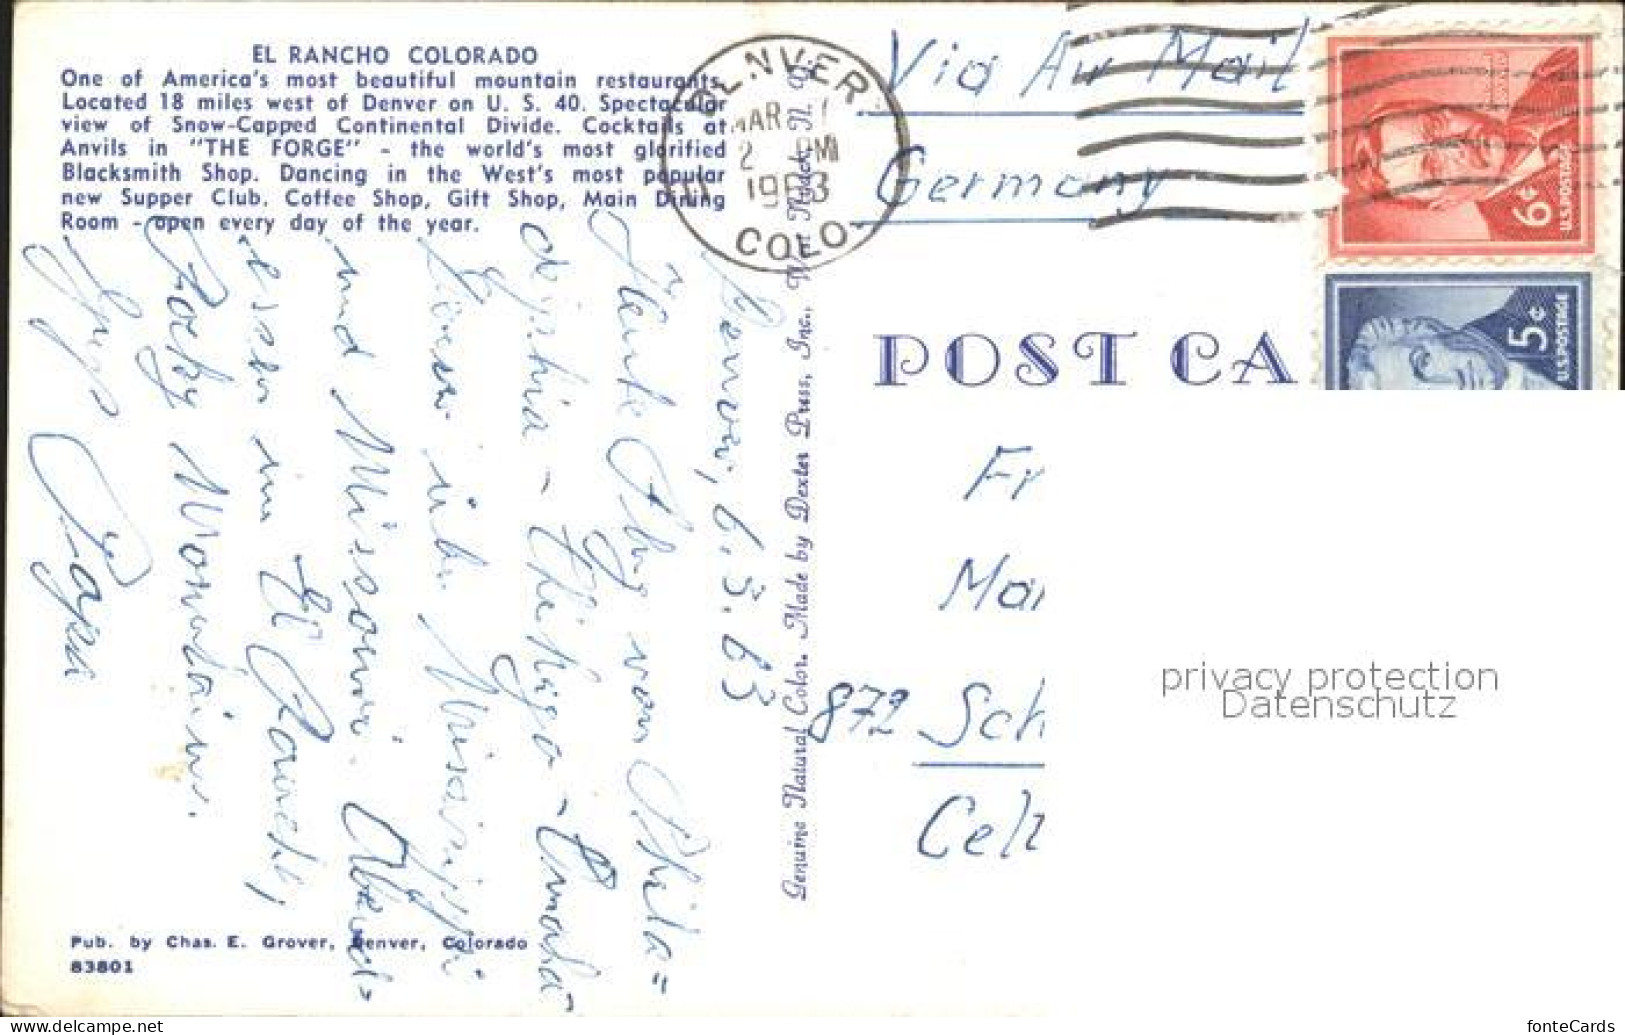 EL RANCHO COLORADO
One of America's most beautiful mountain restaurants.
Located 18 miles west of Denver on U. S. 40. Spectacular
view of Snow-Capped Continental Divide. Cocktails at
Anvils in "THE FORGE" - the world's most glorified
Blacksmith Shop. Dancing in the West's most popular
new Supper Club. Coffee Shop, Gift Shop, Main Dining
Room - open every day of the year.
Denver, 6.3.63
Heute Flug von Phila=
delphia - Chikago - Omaha
Denver über Missisippi
und Missouri. Abend-
essen im El Rancho,
Rocky Mountains.
Papa
Pub. by Chas. E. Grover, Denver, Colorado
83801
Genuine Natural Color. Made by Dexter Press, Inc., West Nyack, N. Y.
DENVER
MAR 7
2 PM
1963
COLO.
Via Air Mail
Germany
6¢
U.S. POSTAGE
5¢
U.S. POSTAGE
POST CA
Fr
Mar
872 Sch
Cell
privacy protection
Datenschutz
www.delcampe.net
fonteCards